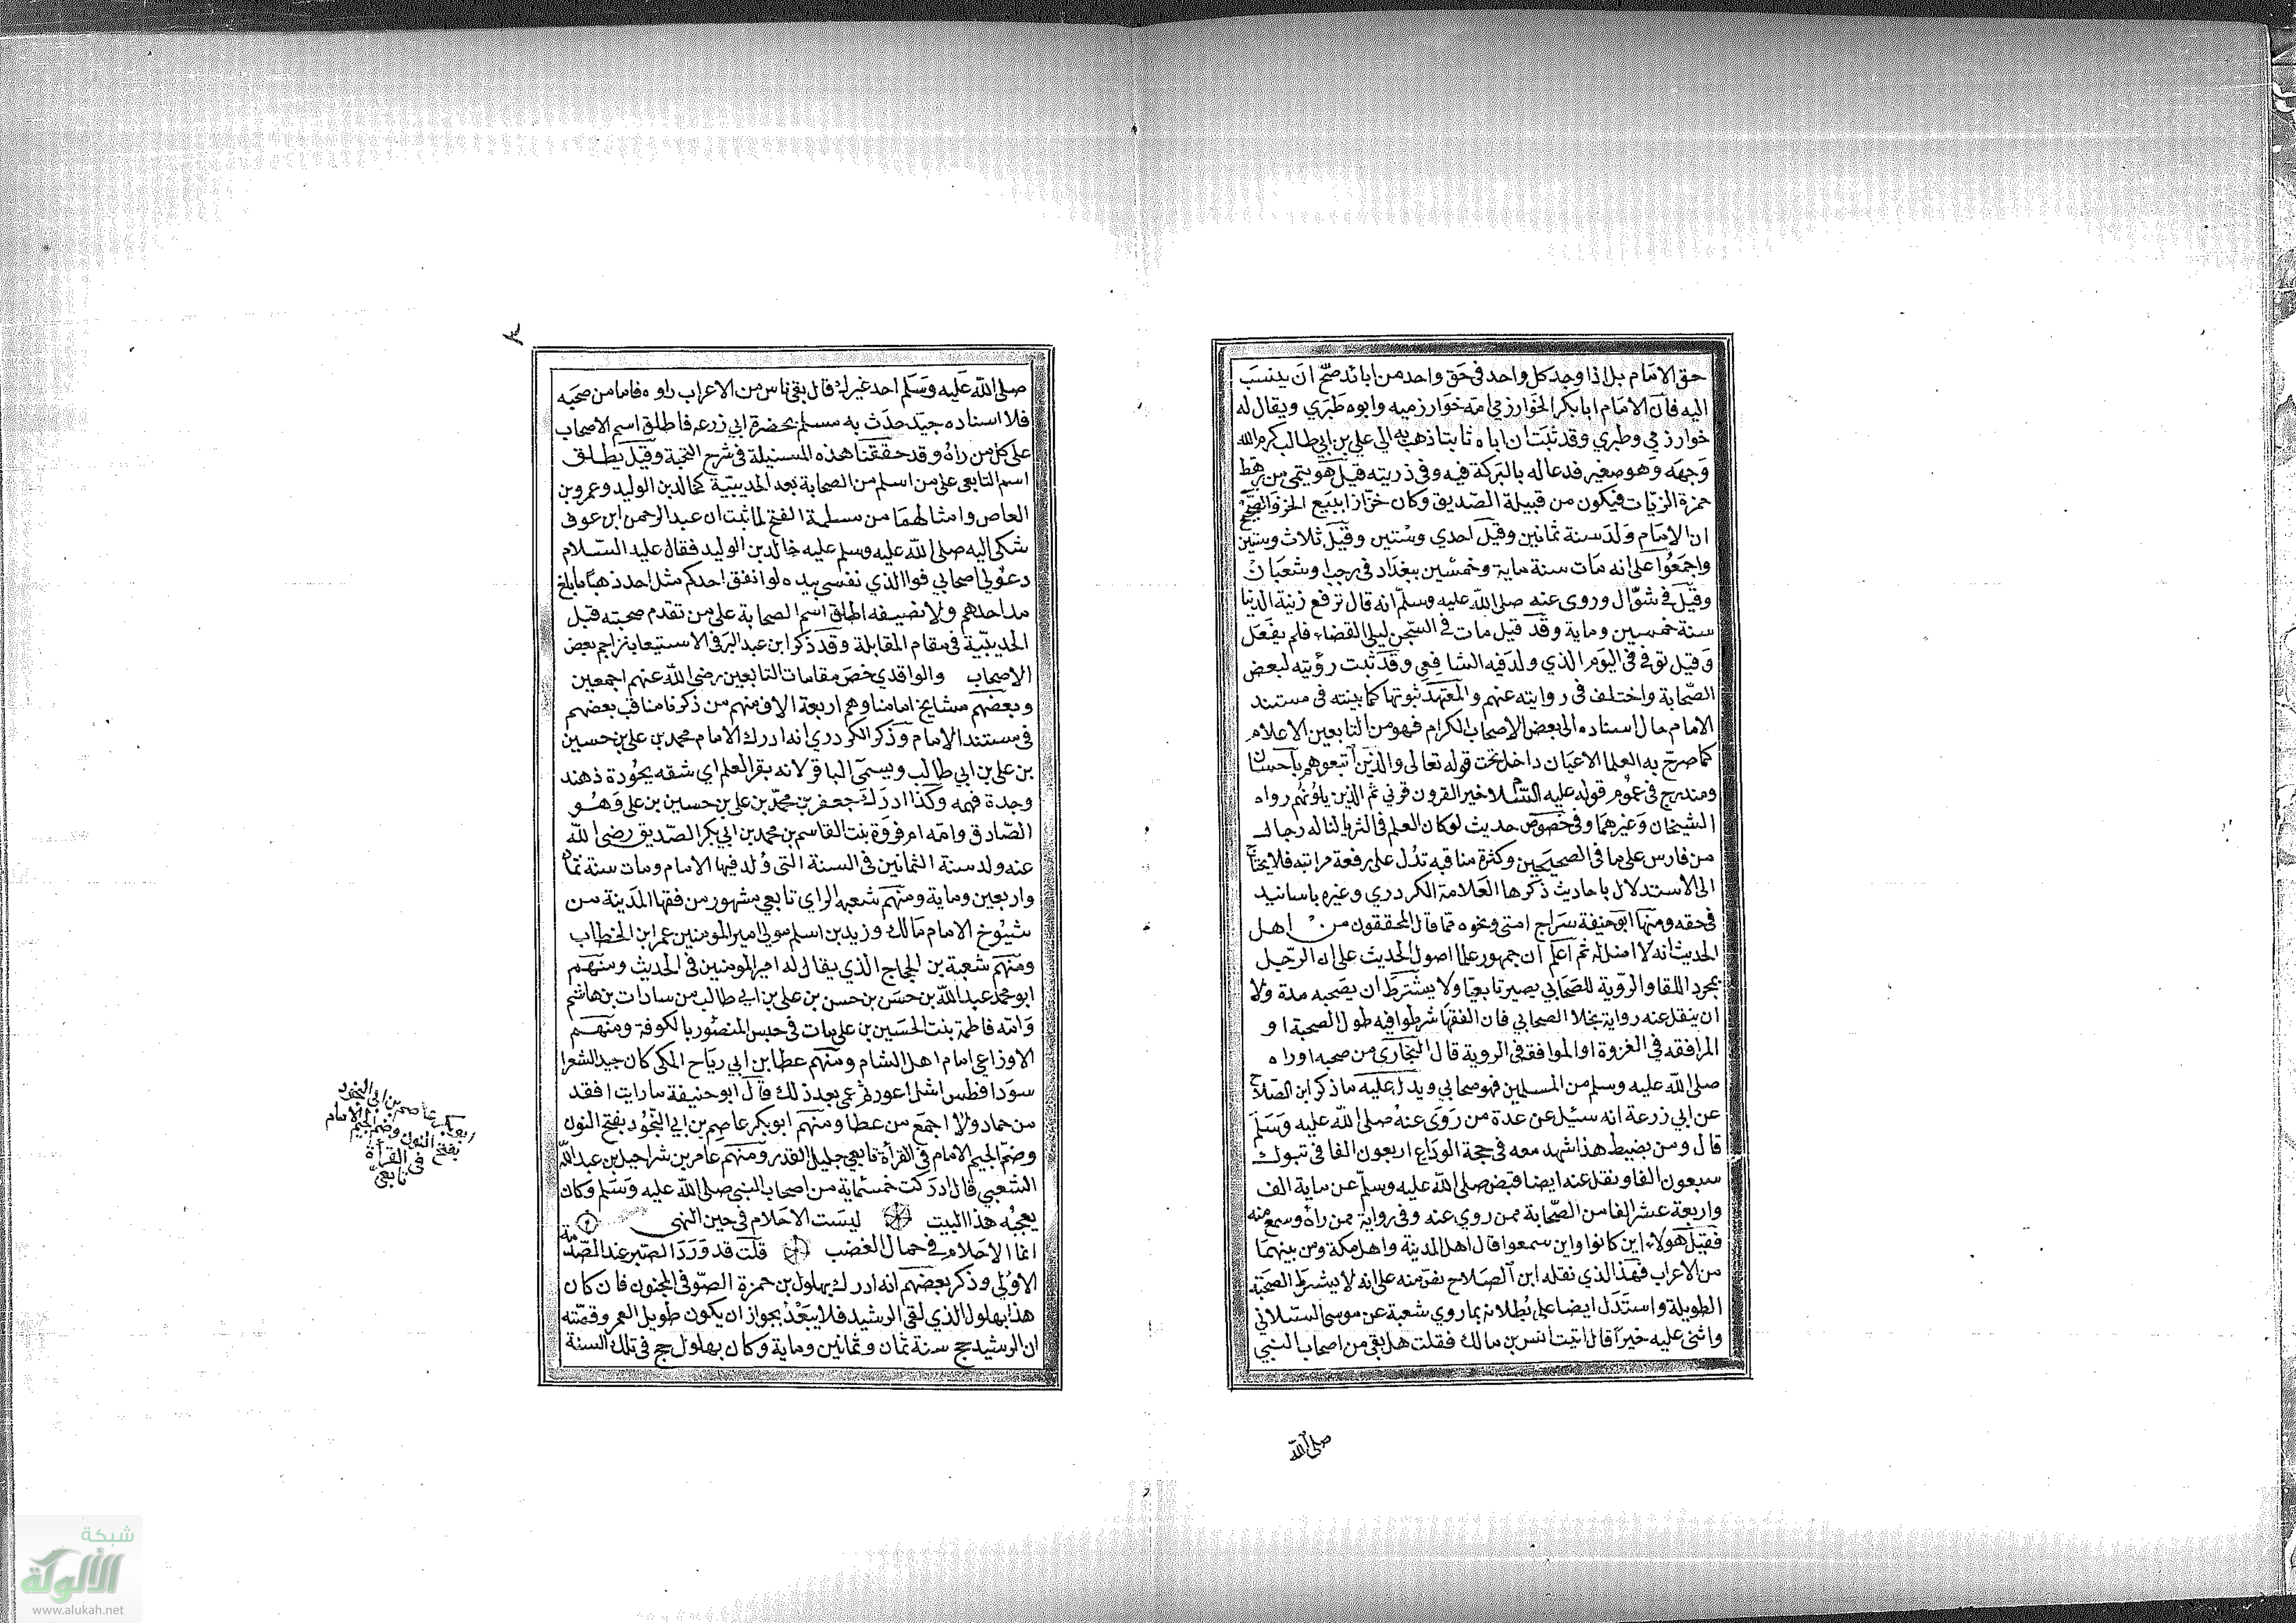 حق الامام بل اذا وجد كل واحد فى حق واحد من ابائه صح ان ينسب
اليه فان الامام ابا بكر الخوارزمي امه خوارزميه وابوه طبري ويقال له
خوارزمي وطبري وقد ثبت ان اباه ثابتا ذهب به الى علي بن ابي طالب كرم الله
وجهه وهو صغير فدعا له بالبركة فيه وفى ذريته قيل هو يتمى من رهط
حمزة الزيات فيكون من قبيلة الصديق وكان خزازا يبيع الخز والصحيح
ان الامام ولد سنة ثمانين وقيل احدي وستين وقيل ثلاث وستين
واجمعوا على انه مات سنة ماية وخمسين ببغداد فى رجب او شعبان
وقيل فى شوال وروى عنه صلى الله عليه وسلم انه قال ترفع زنية الدنيا
سنة خمسين وماية وقد قيل مات فى السجن ليلى القضاء فلم يفعل
وقيل توفى فى اليوم الذي ولد فيه الشافعي وقد ثبت رؤيته لبعض
الصحابة واختلف فى روايته عنهم والمعتمد ثبوتها كما بينته فى مستند
الامام حال اسناده الى بعض الاصحاب الكرام فهو من التابعين الاعلام
كما صرح به العلما الاعيان داخل تحت قوله تعالى والذين اتبعوهم باحسان
ومندرج فى عموم قوله عليه السلام خير القرون قرني ثم الذين يلونهم رواه
الشيخان وغيرهما وفى خصوص حديث لو كان العلم فى الثريا لناله رجال
من فارس على ما فى الصحيحين وكثرة مناقبه تدل على رفعة مراتبه فلا يحتاج
الى الاستدلال باحاديث ذكرها العلامة الكردري وغيره باسانيد
فى حقه ومنها ابو حنيفة سراج امتى ونحوه مما قال المحققون من اهل
الحديث انه لا اصل له ثم اعلم ان جمهور علما اصول الحديث على ان الرجل
بمجرد اللقا والرؤية للصحابي يصير تابعيا ولا يشترط ان يصحبه مدة ولا
ان ينقل عنه رواية بخلا الصحابي فان الفقها شرطوا فيه طول الصحبة او
المرافقه في الغزوة او الموافقة فى الروية قال البخارى من صحبه او راه
صلى الله عليه وسلم من المسلمين فهو صحابي ويدل عليه ما ذكر ابن الصلاح
عن ابي زرعة انه سئيل عن عدة من روى عنه صلى الله عليه وسلم
قال ومن يضبط هذا شهد معه فى حجة الوداع اربعون الفا فى تبوك
سبعون الفا ونقل عنه ايضا قبض صلى الله عليه وسلم عن ماية الف
واربعة عشر الفا من الصحابة ممن روي عنه وفى رواية ممن راه وسمع منه
فقيل هولاء اين كانوا واين سمعوا قال اهل المدينة واهل مكة ومن بينهما
من الاعراب فهذا الذي نقله ابن الصلاح نفر منه على انه لا يشرط الصحبة
الطويلة واستدل ايضا على بطلانه بما روي شعبة عن موسى السبلاني
واثنى عليه خيرا قال اتيت انس بن مالك فقلت هل بقى من اصحاب النبي
صلى الله
صلى الله عليه وسلم احد غيرك قال بقى ناس من الاعراب راوه فاما من صحبه
فلا اسناده جيد حدث به مسلم بحضرة ابي زرعه فاطلق اسم الاصحاب
على كل من راه وقد حققنا هذه المسئيلة فى شرح النخبة وقيل يطلق
اسم التابعى على من اسلم من الصحابة بعد الحديبية كخالد بن الوليد وعمرو بن
العاص وامثالهما من مسلمة الفتح لما ثبت ان عبد الرحمن ابن عوف
شكى اليه صلى الله عليه وسلم عليه خالد بن الوليد فقال عليه السلام
دعولي اصحابي فوالذي نفسى بيده لو انفق احدكم مثل احد ذهبا ما بلغ
مد احدهم ولا نصيفه اطلق اسم الصحابة على من تقدم صحبته قبل
الحديبية فى مقام المقابلة وقد ذكر ابن عبد البر فى الاستيعاب تراجم بعض
الاصحاب والواقدي خص مقامات التابعين رضى الله عنهم اجمعين
وبعضهم مشايخ امامنا وهم اربعة الاف منهم من ذكرنا مناقب بعضهم
فى مستند الامام وذكر الكردري انه ادرك الامام محمد بن علي بن حسين
بن على بن ابي طالب ويسمى الباقر لانه بقر العلم اي شقه بجودة ذهنه
وجدة فهمه وكذا ادرك جعفر بن محمد بن على بن حسين بن على وهو
الصادق وامه ام فروة بنت القاسم بن محمد بن ابي بكر الصديق رضى الله
عنه ولد سنة الثمانين فى السنة التى ولد فيها الامام ومات سنة ثمان
واربعين وماية ومنهم شعبه الراي تابعي مشهور من فقها المدينة من
شيوخ الامام مالك وزيد بن اسلم مولى امير المومنين عمر ابن الخطاب
ومنهم شعبة بن الحجاج الذي يقال له امير المومنين فى الحديث ومنهم
ابو محمد عبد الله بن حسن بن حسن بن على بن ابي طالب من سادات بن هاشم
وامه فاطمة بنت الحسين بن على مات فى حبس المنصور بالكوفة ومنهم
الاوزاعي امام اهل الشام ومنهم عطا بن ابي رباح المكى كان جيد الشعرا
سودا فطس اشل اعور ثم عمى بعد ذلك قال ابو حنيفة ما رايت افقه
من حماد ولا اجمع من عطا ومنهم ابو بكر عاصم بن ابي النجود بفتح النون
وضم الجيم الامام فى القرأة تابعي جليل القدر ومنهم عامر بن شراحيل بن عبد الله
الشعبي قال ادركت خمسماية من اصحاب النبي صلى الله عليه وسلم وكان
يعجبه هذا البيت ليست الاحلام فى حين النهى
انما الاحلام في حال الغضب قلت قد ورد الصبر عند الصدمة
الاولى وذكر بعضهم انه ادرك بهلول بن حمزة الصوفى المجنون فان كان
هذا بهلول الذي لقى الرشيد فلا يبعد بجواز ان يكون طويل العمر وقصته
ان الرشيد حج سنة ثمان وثمانين وماية وكان بهلول حج فى تلك السنة
ابو بكر عاصم بن ابى النجود
بفتح النون وضم الجيم الامام
فى القرأة
تابعى
شبكة
الألوكة
www.alukah.net